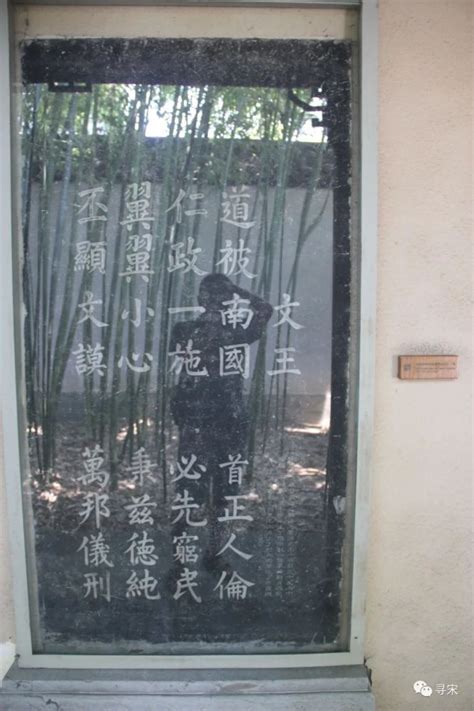 文王
道被南國 首正人倫
仁政一施 必先窮民
翼翼小心 秉茲德純
丕顯文謨 萬邦儀刑
寻宋